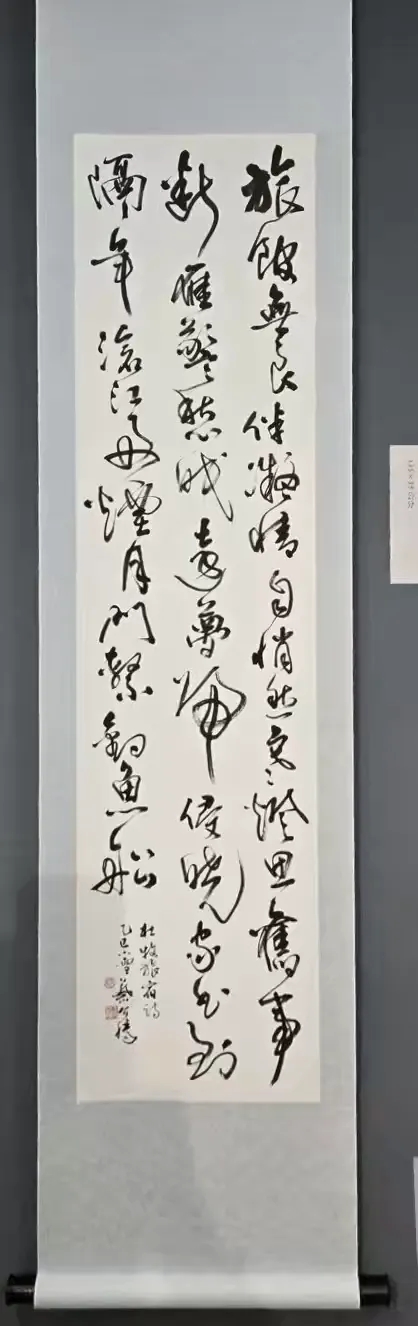 旅館無良伴凝情自悄然寒燈思舊事
斷雁警愁眠遠夢歸侵曉家書到
隔年滄江好煙月門繫釣魚舩
杜牧旅宿詩
乙巳